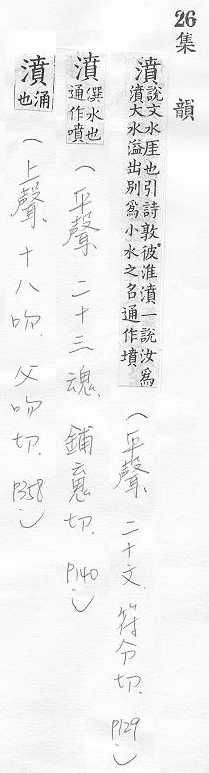 26集韻
濆說文水厓也引詩敦彼淮濆一說汝為濆大水溢出別為小水之名通作墳(平聲、二十文、符分切、P129)
濆潠水也通作噴(平聲、二十三魂、鋪䰟切、P140)
濆涌也(上聲、十八吻、父吻切、P358)